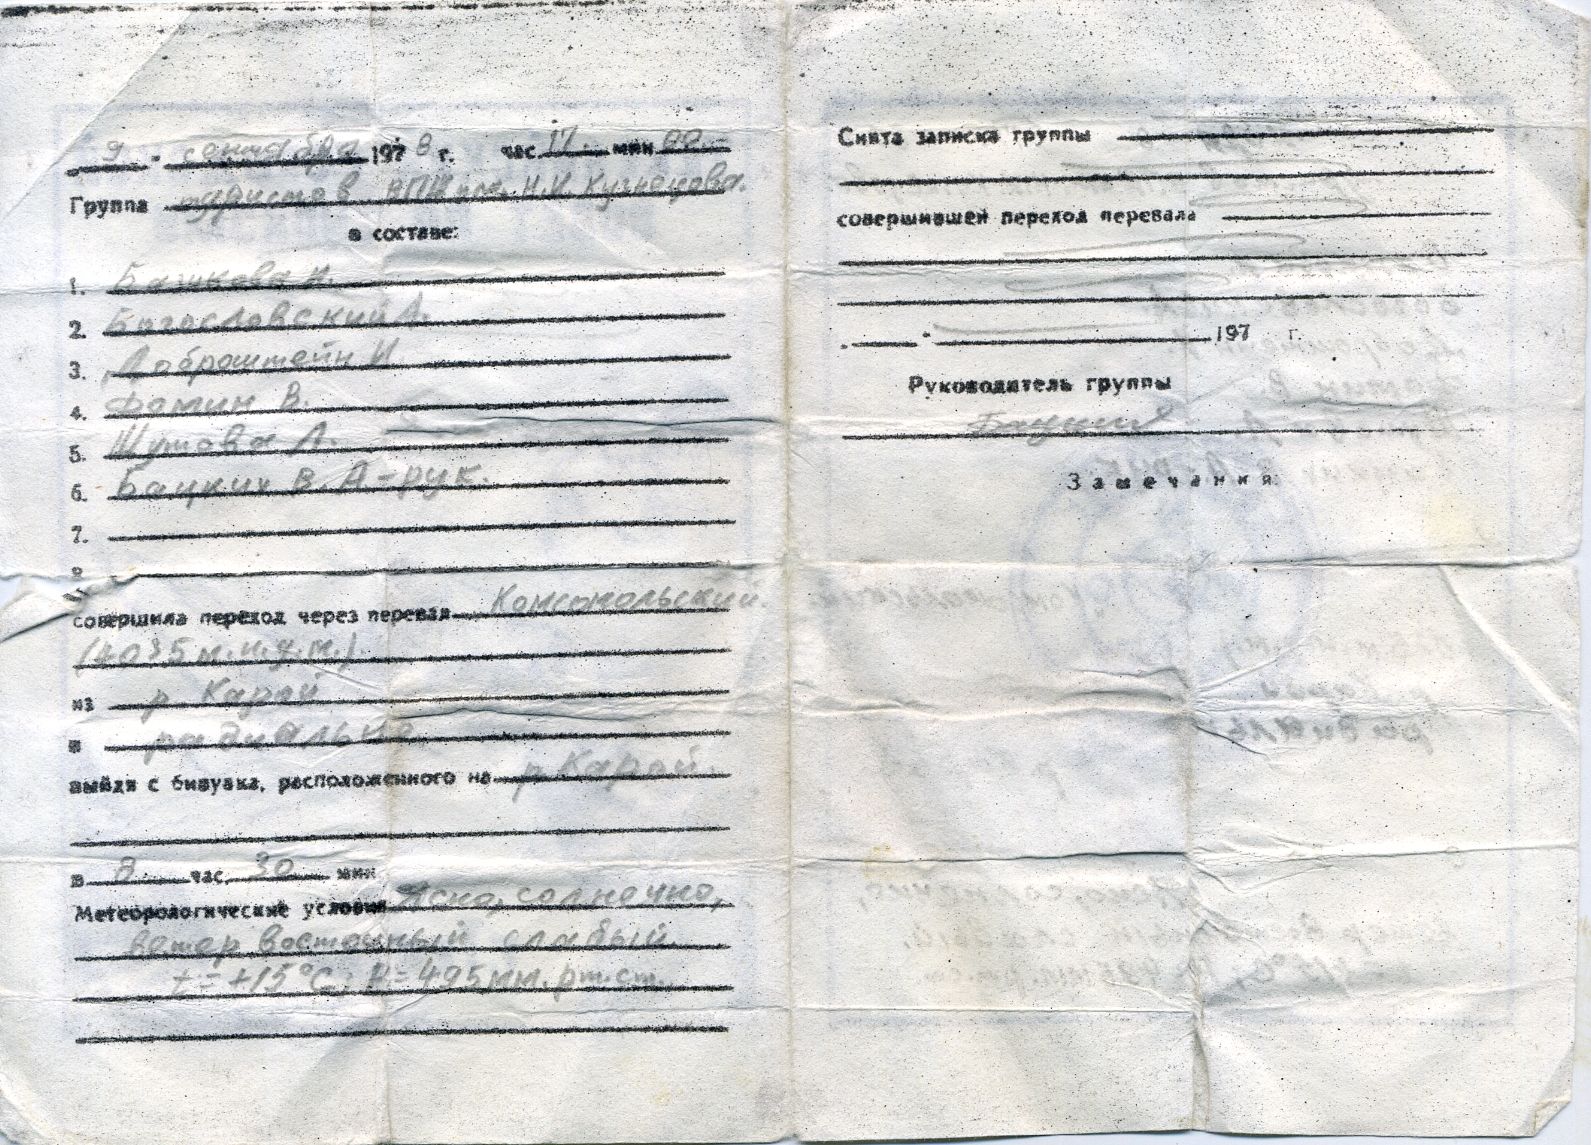 9 - сентября 1978 г. час 17 мин 00
Группа туристов ВПИ им. Н.И. Кузнецова.
в составе:
1. Башкова Н.
2. Богословский А.
3. Доброштейн И
4. Фомин В.
5. Шутова Л.
6. Бацких В. А - рук.
7.
8
совершила переход через перевал Комсомольский.
(4085 м.н.у.м.)
из р. Карой
в радиально
выйдя с бивуака, расположенного на р Карой.
в 8 час. 30 мин
Метеорологические условия Ясно, солнечно,
ветер восточный слабый.
t = +15°С; Н = 495 мм. рт. ст.
Снята записка группы
совершившей переход перевала
. - 197 г.
Руководитель группы
Замечания: